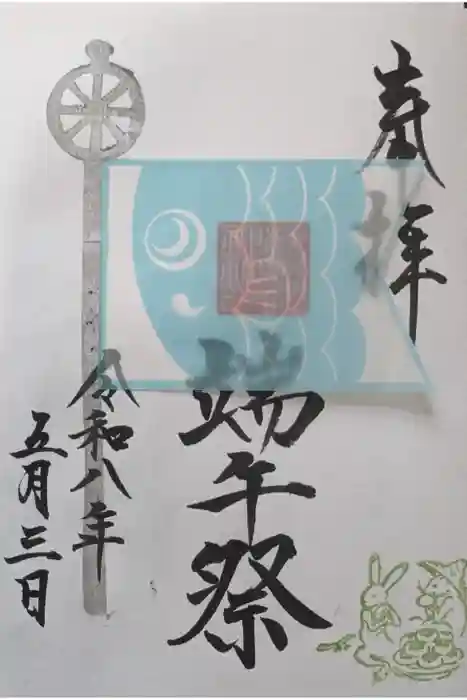 奉拝
端午祭
令和八年
五月三日